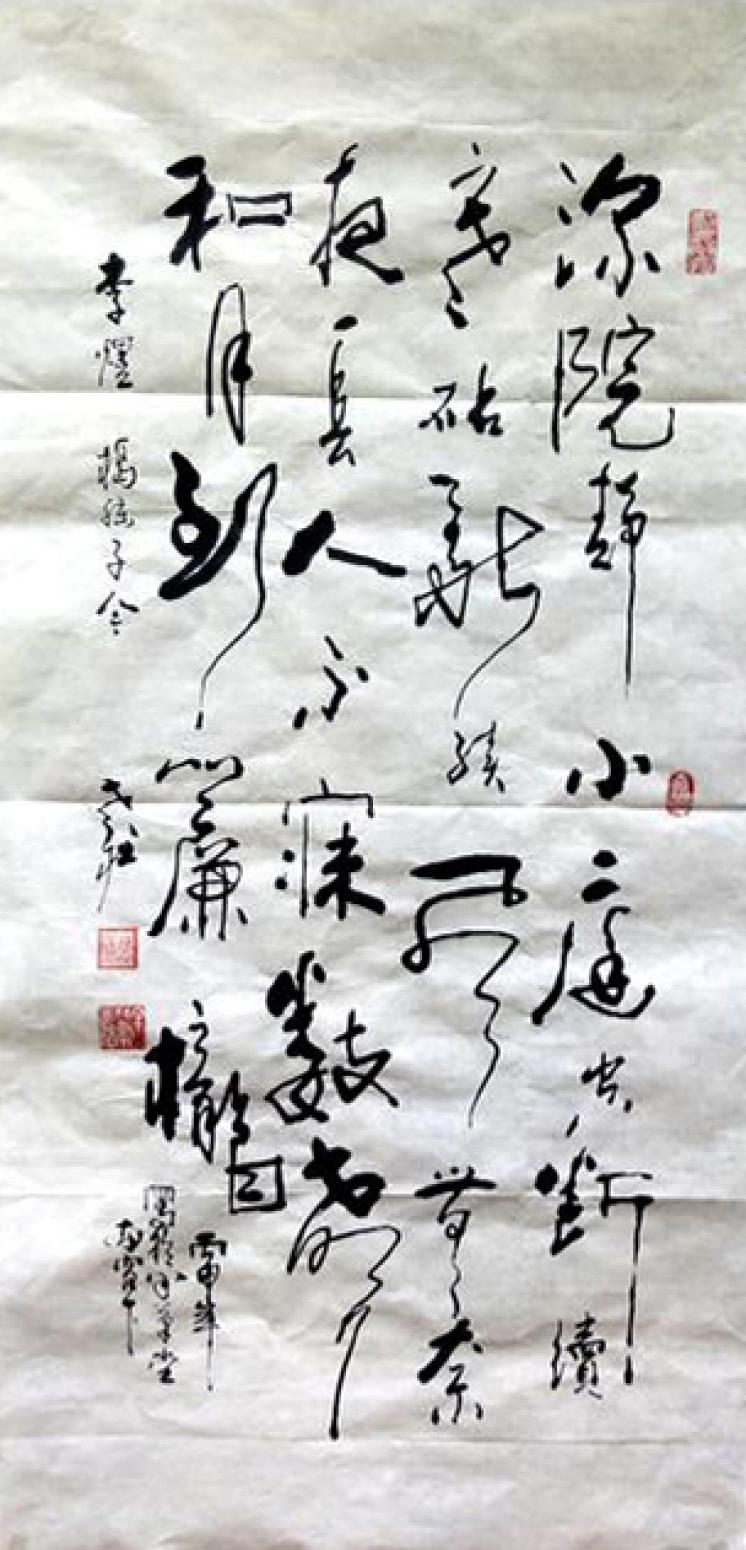 深院静小庭空断續
寒砧斷續風無奈
夜長人不寐數聲
和月到簾櫳
丙申年
李煜 搗練子令